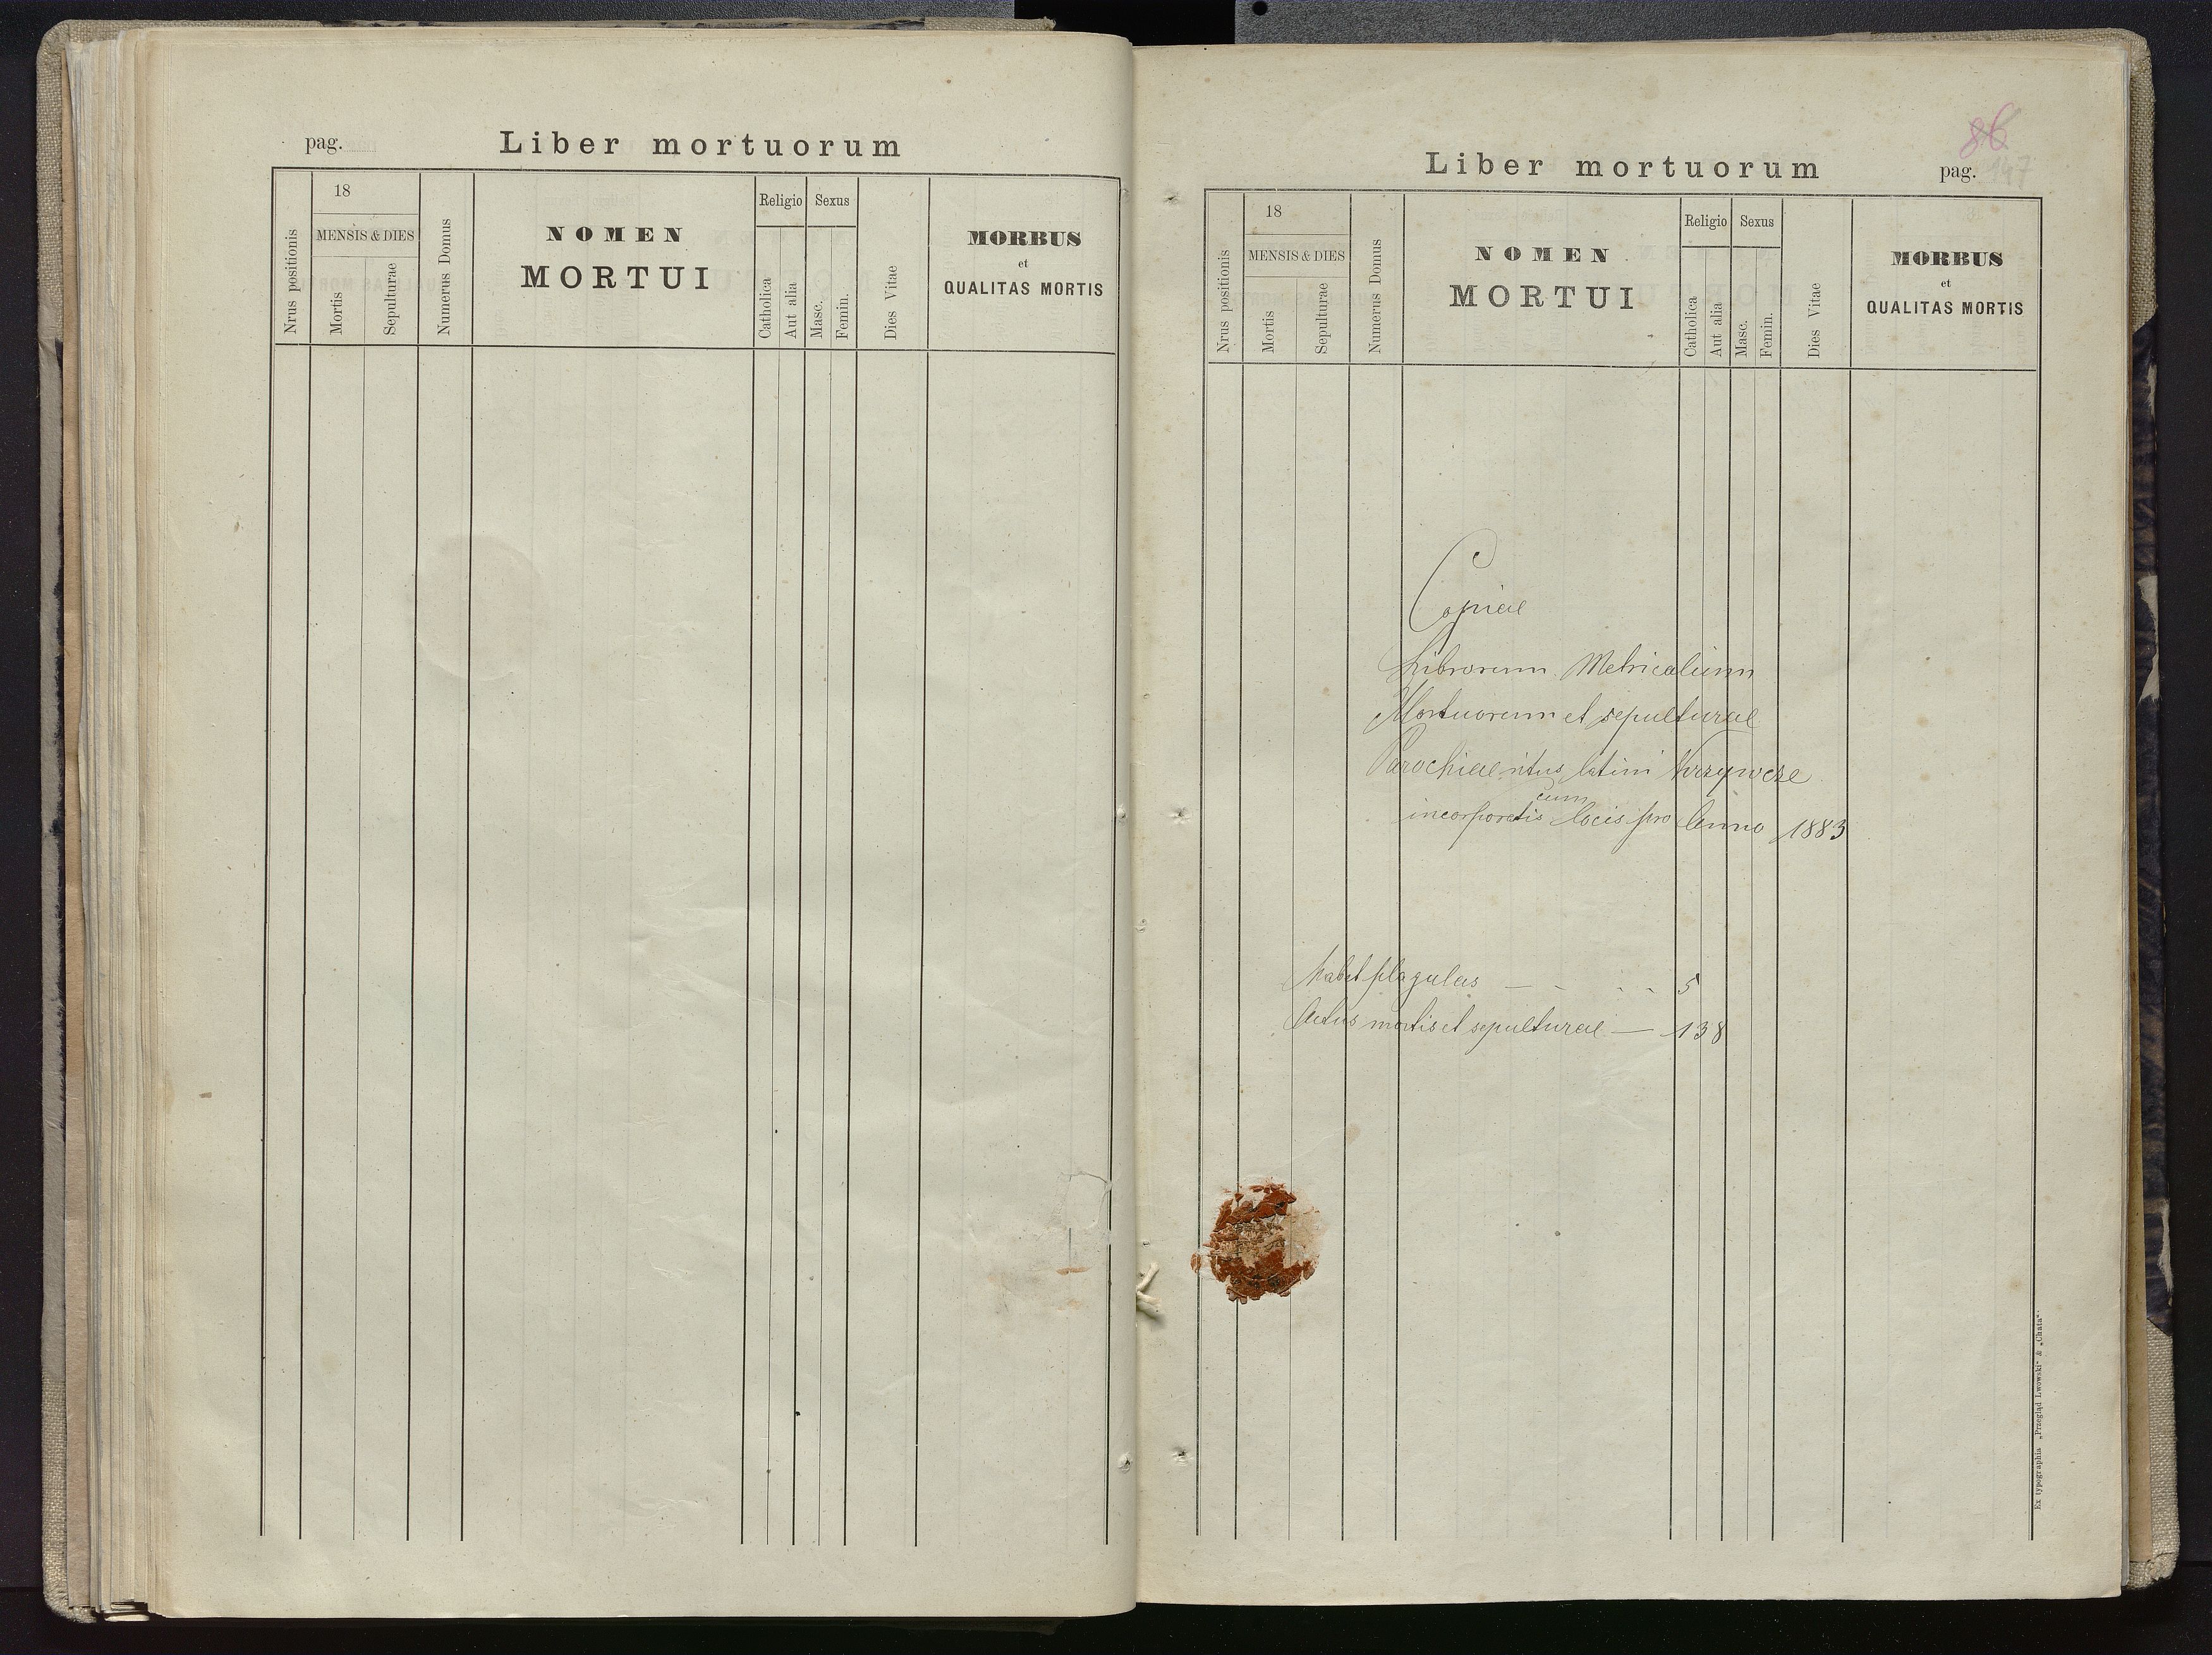 pag.
Liber mortuorum
Nrus positionis
18
MENSIS & DIES
Mortis
Sepulturae
Numerus Domus
NOMEN
MORTUI
Religio
Catholica
Aut alia
Sexus
Masc.
Femin.
Dies Vitae
MORBUS
et
QUALITAS MORTIS
86
147
Liber mortuorum
pag.
Nrus positionis
18
MENSIS & DIES
Mortis
Sepulturae
Numerus Domus
NOMEN
MORTUI
Religio
Catholica
Aut alia
Sexus
Masc.
Femin.
Dies Vitae
MORBUS
et
QUALITAS MORTIS
Copiae
Librorum Metricalium
Mortuorum et sepulturae
Parochiae ritus latini
cum
incorporatis locis pro Anno 1883
habet plagulas — - - - 5
Actus mortis et sepulturae — 138
Ex typographia „Przegląd Lwowski" & „Chata".